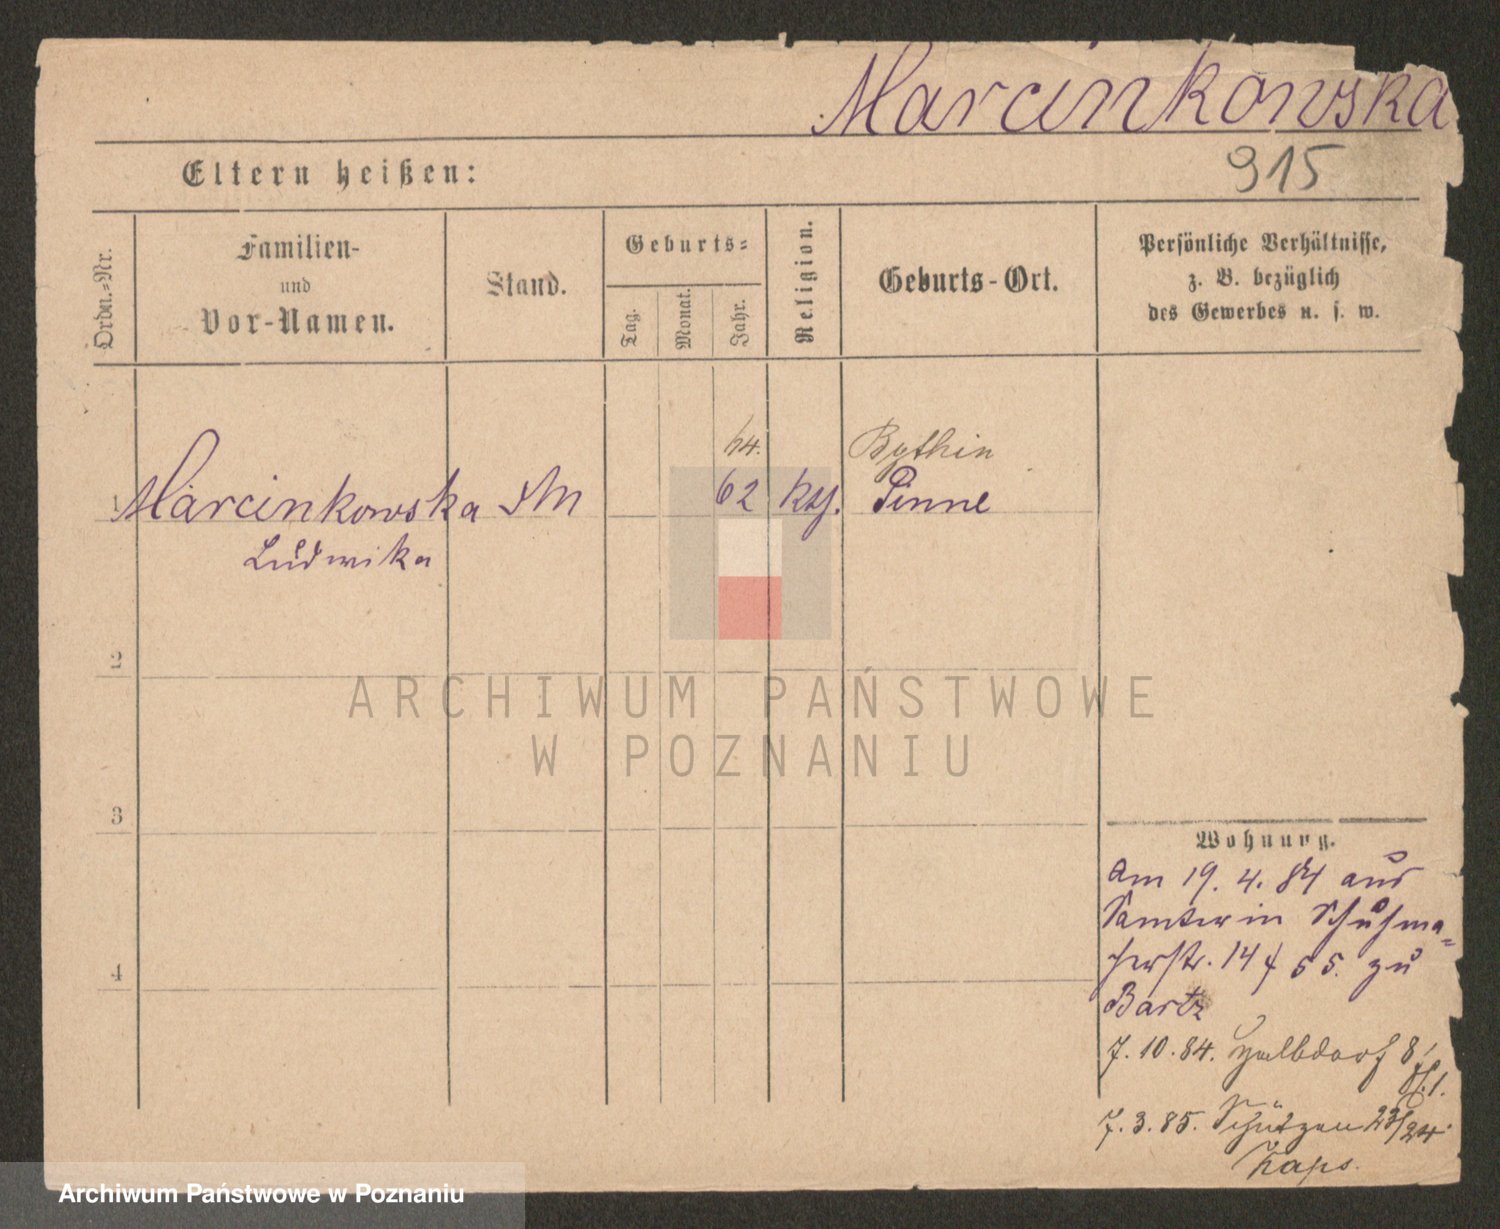 Marcinkowska
915
Eltern heißen:
Ordn.-Nr.
Familien-
und
Vor-Namen.
Stand.
Geburts-
Tag.
Monat.
Jahr.
Religion.
Geburts-Ort.
Persönliche Verhältnisse,
z. B. bezüglich
des Gewerbes u. s. w.
64. Bythin
1 Marcinkowska 62 kth. Pinne
Ludwika
2
3
4
Wohnung.
Am 19. 4. 84 aus
Samter in Schuhma-
cherstr. 14 zu
Bartz
7. 10. 84. Halbdorf 8
7. 3. 85. Schützen 23/24
Kaps.
ARCHIWUM PAŃSTWOWE
W POZNANIU
Archiwum Państwowe w Poznaniu